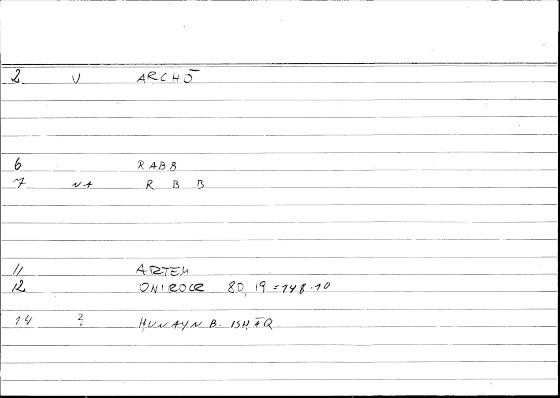 2 V ARCHŌ
6 RABB
7 NA R B B
11 ARTEM
12 ONIROCR 80, 19 = 148.10
14 ? HUNAYN B. ISḤĀQ